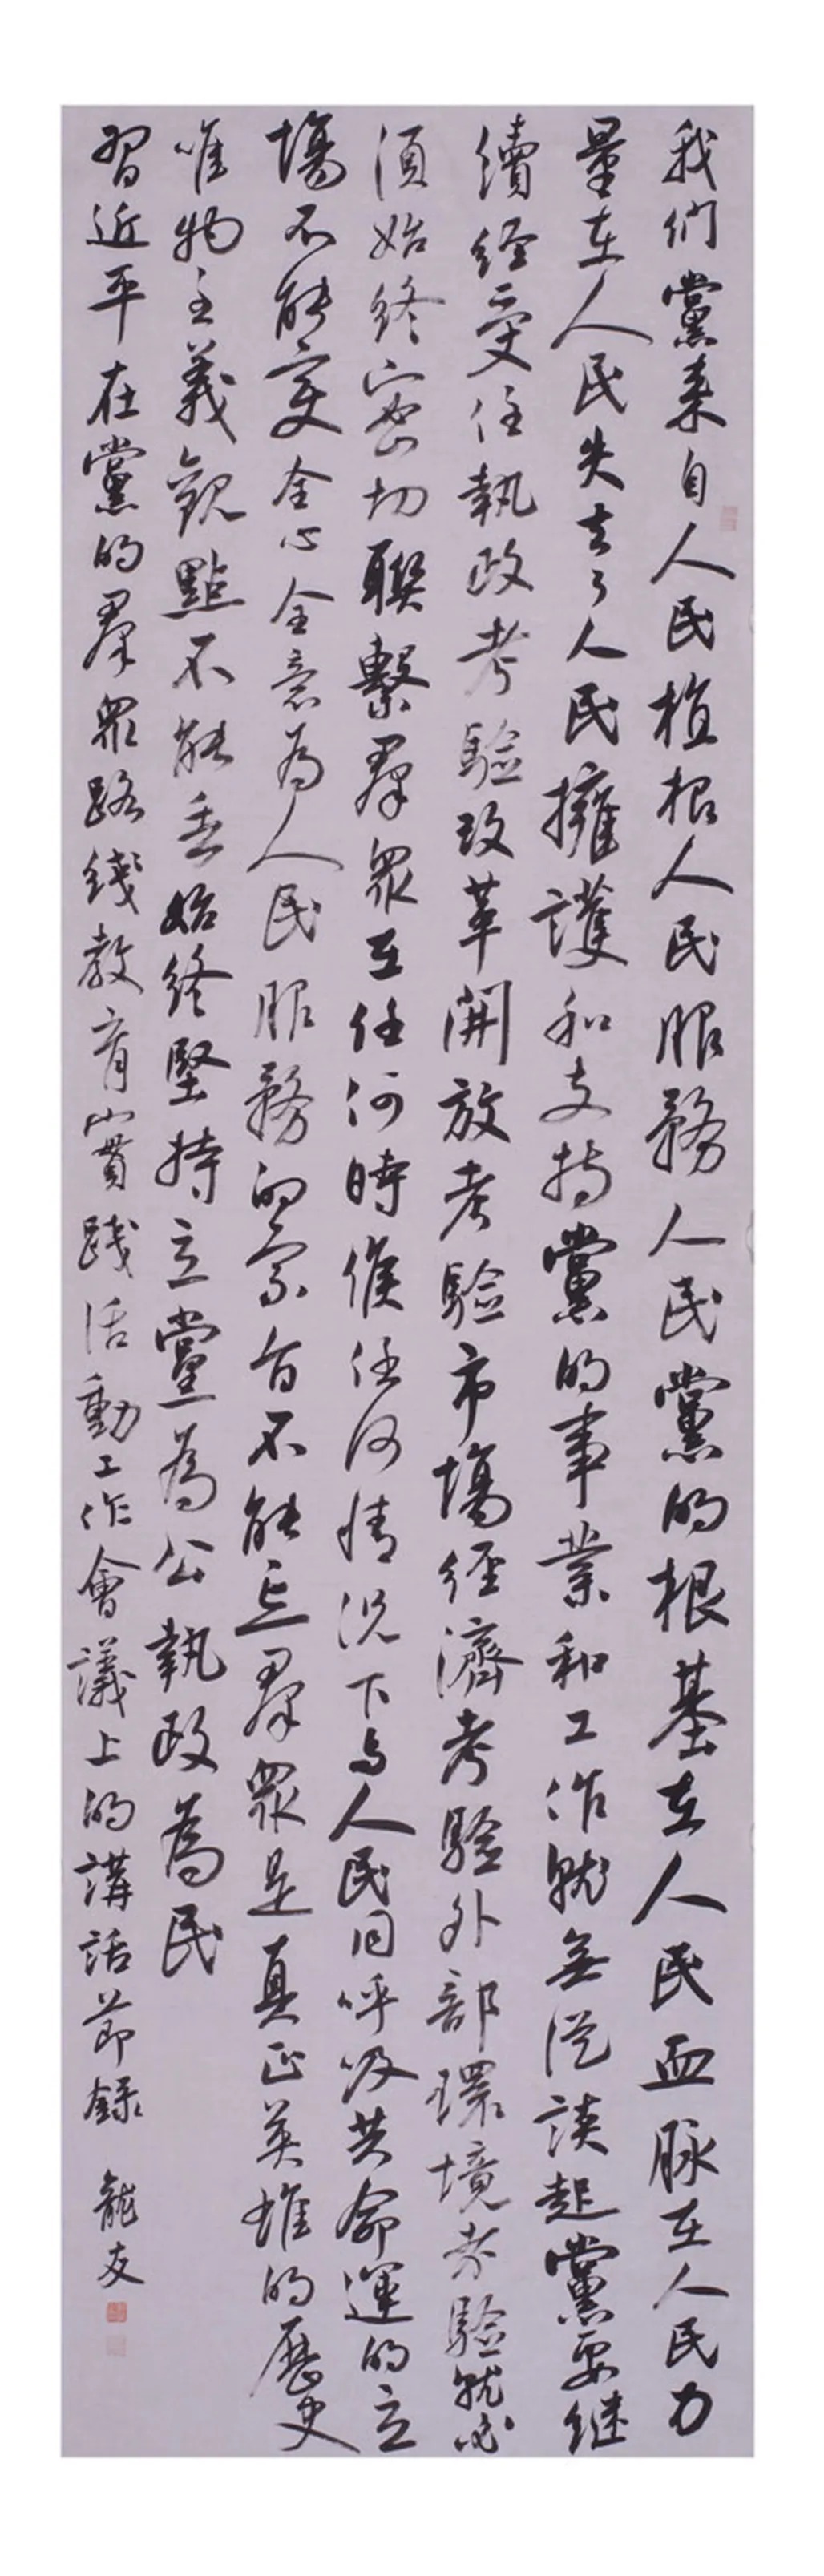 我们黨来自人民植根人民服務人民黨的根基在人民血脉在人民力
量在人民失去了人民擁護和支持黨的事業和工作就無從談起黨要继
續经受住執政考驗改革開放考驗市場經濟考驗外部環境考驗就必
須始終密切聯繫群眾在任何時候任何情况下与人民同呼吸共命運的立
場不能变全心全意为人民服務的宗旨不能忘群眾是真正英雄的歷史
唯物主義觀點不能丢始終堅持立黨為公執政為民
習近平在黨的群眾路綫教育實踐活動工作會議上的講話節錄 龍友